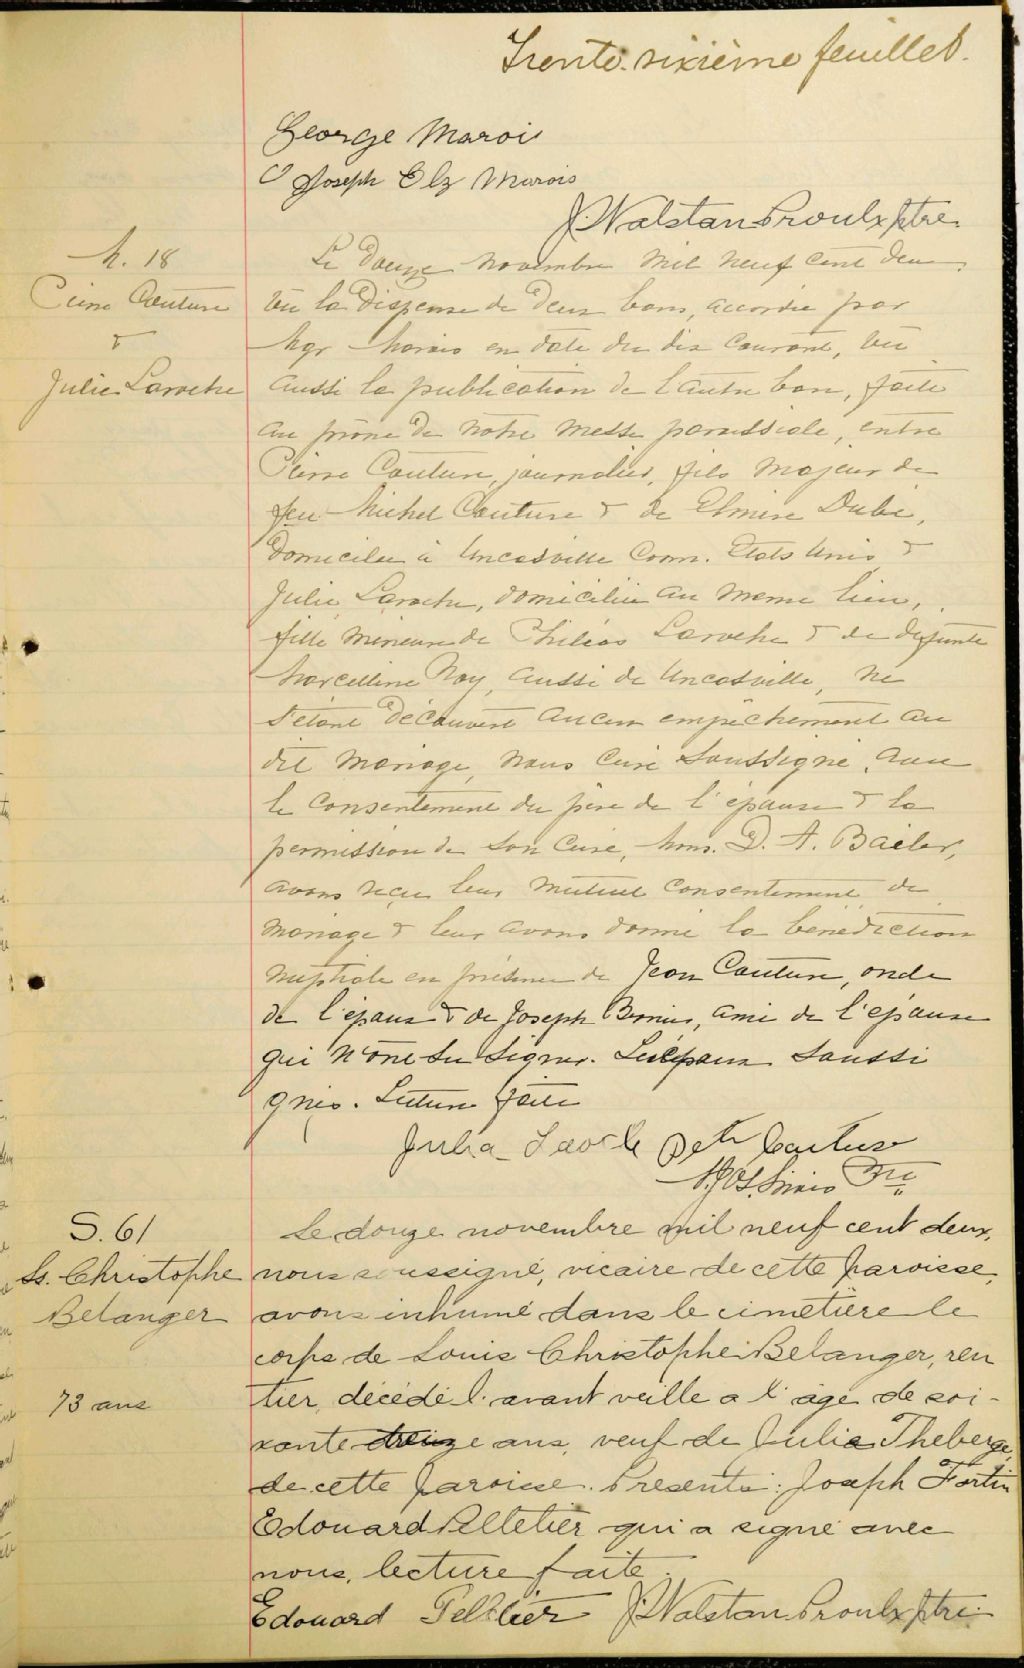 Trente-sixième feuillet.
George Marois
Joseph Elz Marois
J. Walstan Proulx ptre.
M. 18
Pierre Couture
&
Julie Laroche
Le douze novembre mil neuf cent deux,
vu la dispense de deux bans, accordée par
Mgr Marois en date du dix courant, vu
aussi la publication de l'autre ban, faite
au prône de notre messe paroissiale, entre
Pierre Couture, journalier, fils majeur de
feu Michel Couture & de Elmire Dubé,
domicilié à Uncasville Conn. Etats Unis &
Julie Laroche, domiciliée au meme lieu,
fille mineure de Philéas Laroche & de defunte
Marcelline Roy, aussi de Uncasville, ne
s'étant découvert aucun empêchement au
dit mariage, nous curé soussigné, avec
le consentement du père de l'épouse & la
permission de son curé, Mons. D. A. Bailey,
avons reçu leur mutuel consentement de
mariage & leur avons donné la bénédiction
nuptiale en présence de Jean Couture, oncle
de l'époux & de Joseph Bernier, ami de l'épouse
qui n'ont su signer. Les époux soussi
gnés. Lecture faite
Julia Laroche Peter Couture
Ptre
S. 61
Ls. Christophe
Belanger
73 ans
Le douze novembre mil neuf cent deux,
nous soussigné, vicaire de cette paroisse,
avons inhumé dans le cimetière le
corps de Louis Christophe Belanger, ren
tier, décédé l'avant veille a l'âge de soi-
xante treize ans, veuf de Julie Theberge,
de cette paroisse. Présents: Joseph Fortin
Edouard Pelletier qui a signé avec
nous, lecture faite.
Edouard Pelletier J. Walstan Proulx ptre.